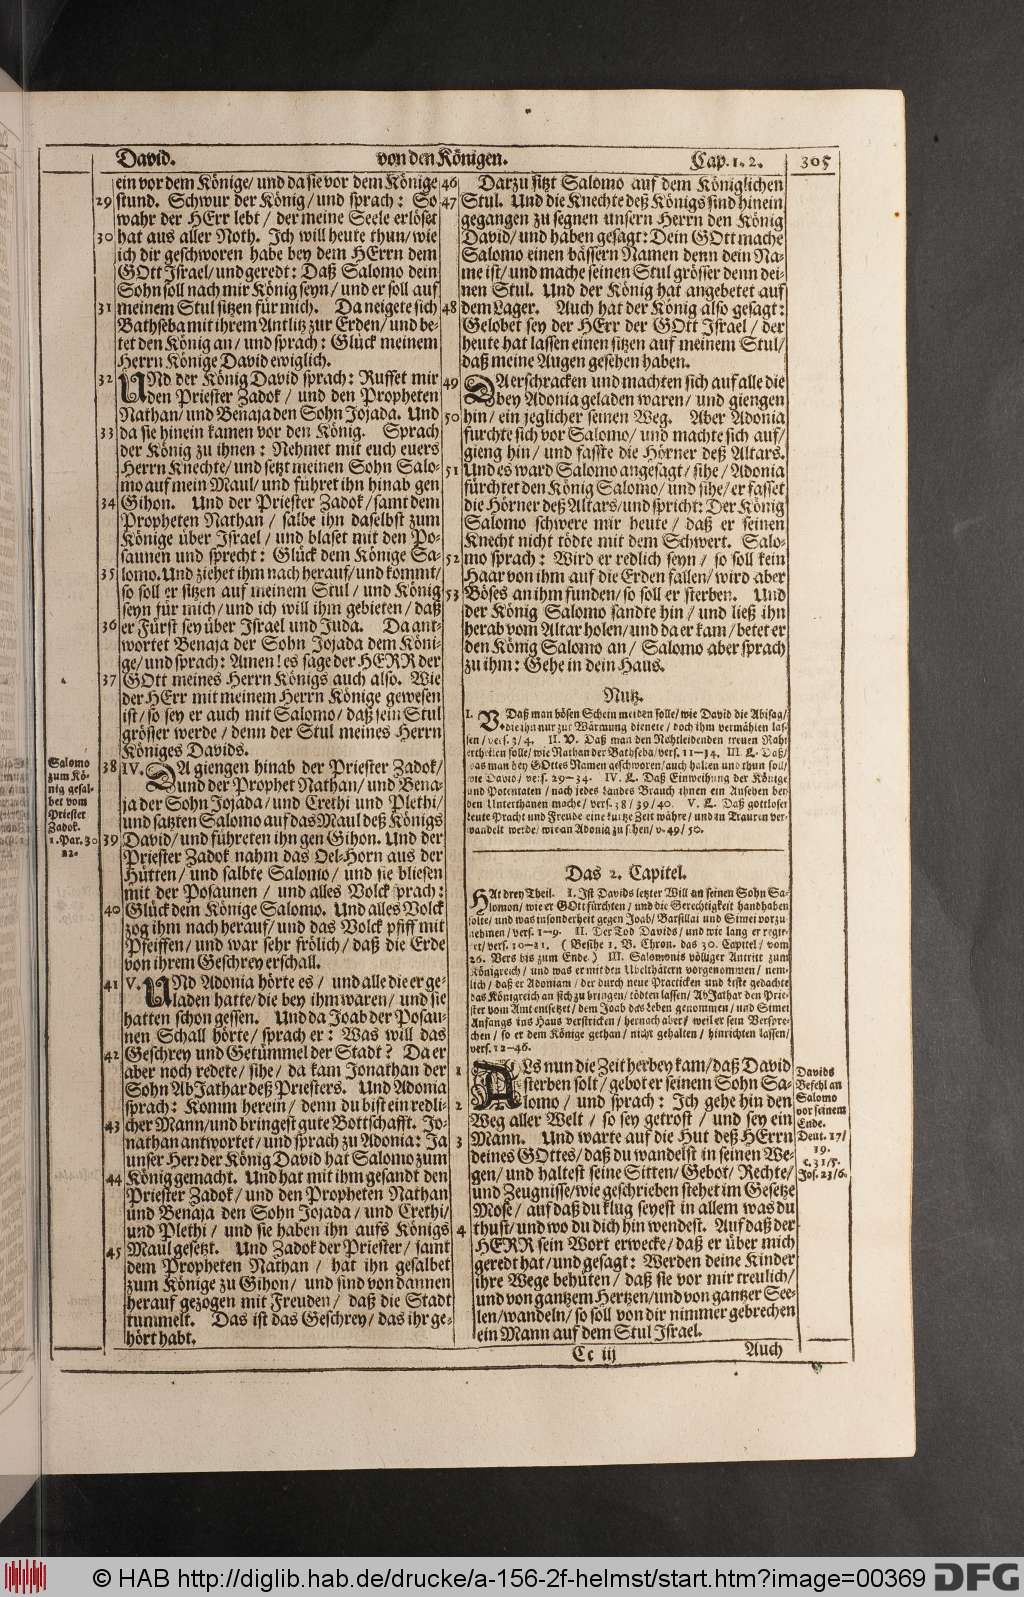 David. von den Königen. Cap. 1. 2. 305
ein vor dem Könige/ und da sie vor dem Könige
29 stund. Schwur der König/ und sprach: So
wahr der HErr lebt/ der meine Seele erlöset
30 hat aus aller Noth. Ich will heute thun/ wie
ich dir geschworen habe bey dem HErrn dem
GOtt Israel/ und geredt: Daß Salomo dein
Sohn soll nach mir König seyn/ und er soll auf
31 meinem Stul sitzen für mich. Da neigete sich
Bathseba mit ihrem Antlitz zur Erden/ und be-
tet den König an/ und sprach: Glück meinem
Herrn Könige David ewiglich.
32 UNd der König David sprach: Ruffet mir
den Priester Zadok/ und den Propheten
Nathan/ und Benaja den Sohn Jojada. Und
33 da sie hinein kamen vor den König. Sprach
der König zu ihnen: Nehmet mit euch euers
Herrn Knechte/ und setzt meinen Sohn Salo-
mo auf mein Maul/ und führet ihn hinab gen
34 Gihon. Und der Priester Zadok/ samt dem
Propheten Nathan/ salbe ihn daselbst zum
Könige über Israel/ und blaset mit den Po-
saunen und sprecht: Glück dem Könige Sa-
35 lomo. Und ziehet ihm nach herauf/ und kommt/
so soll er sitzen auf meinem Stul/ und König
seyn für mich/ und ich will ihm gebieten/ daß
36 er Fürst sey über Israel und Juda. Da ant-
wortet Benaja der Sohn Jojada dem Köni-
ge/ und sprach: Amen! es sage der HERR der
37 GOtt meines Herrn Königs auch also. Wie
der HErr mit meinem Herrn Könige gewesen
ist/ so sey er auch mit Salomo/ daß sein Stul
grösser werde/ denn der Stul meines Herrn
Königes Davids.
38 IV. DA giengen hinab der Priester Zadok/
und der Prophet Nathan/ und Bena-
ja der Sohn Jojada/ und Crethi und Plethi/
und satzten Salomo auf das Maul deß Königs
39 David/ und führeten ihn gen Gihon. Und der
Priester Zadok nahm das Oel-Horn aus der
Hütten/ und salbte Salomo/ und sie bliesen
mit der Posaunen/ und alles Volck sprach:
40 Glück dem Könige Salomo. Und alles Volck
zog ihm nach herauf/ und das Volck pfiff mit
Pfeiffen/ und war sehr frölich/ daß die Erde
von ihrem Geschrey erschall.
41 V. UNd Adonia hörte es/ und alle die er ge-
laden hatte/ die bey ihm waren/ und sie
hatten schon gessen. Und da Joab der Posau-
nen Schall hörte/ sprach er: Was will das
42 Geschrey und Getümmel der Stadt? Da er
aber noch redete/ sihe/ da kam Jonathan der
Sohn AbJathar deß Priesters. Und Adonia
sprach: Komm herein/ denn du bist ein redli-
43 cher Mann/ und bringest gute Bottschafft. Jo-
nathan antwortet/ und sprach zu Adonia: Ja
unser Herr der König David hat Salomo zum
44 König gemacht. Und hat mit ihm gesandt den
Priester Zadok/ und den Propheten Nathan
und Benaja den Sohn Jojada/ und Crethi/
und Plethi/ und sie haben ihn aufs Königs
45 Maul gesetzt. Und Zadok der Priester/ samt
dem Propheten Nathan/ hat ihn gesalbet
zum Könige zu Gihon/ und sind von dannen
herauf gezogen mit Freuden/ daß die Stadt
tummelt. Das ist das Geschrey/ das ihr ge-
hört habt.
Salomo
zum Kö-
nig gesal-
bet vom
Priester
Zadok.
1. Par. 30
22.
46 Darzu sitzt Salomo auf dem Königlichen
47 Stul. Und die Knechte deß Königs sind hinein
gegangen zu segnen unsern Herrn den König
David/ und haben gesagt: Dein GOtt mache
Salomo einen bässern Namen denn dein Na-
me ist/ und mache seinen Stul grösser denn dei-
nen Stul. Und der König hat angebetet auf
48 dem Lager. Auch hat der König also gesagt:
Gelobet sey der HErr der GOtt Israel/ der
heute hat lassen einen sitzen auf meinem Stul/
daß meine Augen gesehen haben.
49 DA erschracken und machten sich auf alle die
bey Adonia geladen waren/ und giengen
50 hin/ ein jeglicher seinen Weg. Aber Adonia
furchte sich vor Salomo/ und machte sich auf/
gieng hin/ und fasste die Hörner deß Altars.
51 Und es ward Salomo angesagt/ sihe/ Adonia
fürchtet den König Salomo/ und sihe/ er fasset
die Hörner deß Altars/ und spricht: Der König
Salomo schwere mir heute/ daß er seinen
Knecht nicht tödte mit dem Schwert. Salo-
52 mo sprach: Wird er redlich seyn/ so soll kein
Haar von ihm auf die Erden fallen/ wird aber
53 Böses an ihm funden/ so soll er sterben. Und
der König Salomo sandte hin/ und ließ ihn
herab vom Altar holen/ und da er kam/ betet er
den König Salomo an/ Salomo aber sprach
zu ihm: Gehe in dein Haus.
Nutz.
I. V. Daß man bösen Schein meiden solle/ wie David die Abisag/
die ihn nur zur Wärmung dienete/ doch ihm vermählen las-
sen/ vers. 3/4. II. V. Daß man den Nohtleidenden treuen Raht
ertheilen solle/ wie Nathan der Bathseba/ vers. 11-14. III. L. Daß/
was man bey GOttes Namen geschworen/ auch halten und thun soll/
wie David/ vers. 29-34. IV. L. Daß Einweihung der Könige
und Potentaten/ nach jedes Landes Brauch ihnen ein Ansehen bey
den Unterthanen mache/ vers. 38/39/40. V. L. Daß gottloser
Leute Pracht und Freude eine kurtze Zeit währe/ und in Trauren ver-
wandelt werde/ wie an Adonia zu sehen/ v. 49/50.
Das 2. Capitel.
HAt drey Theil. I. Ist Davids letzter Will an seinen Sohn Sa-
lomon/ wie er GOtt fürchten/ und die Gerechtigkeit handhaben
solte/ und was insonderheit gegen Joab/ Barsillai und Simei vorzu-
nehmen/ vers. 1-9. II. Der Tod Davids/ und wie lang er regie-
ret/ vers. 10-11. (Besihe 1. B. Chron. das 30. Capitel/ vom
26. Vers bis zum Ende.) III. Salomonis völliger Antritt zum
Königreich/ und was er mit den Ubelthätern vorgenommen/ nem-
lich/ daß er Adoniam/ der durch neue Practicken und Liste gedachte
das Königreich an sich zu bringen/ tödten lassen/ AbJathar den Prie-
ster vom Amt entsetzet/ dem Joab das Leben genommen/ und Simei
Anfangs ins Haus verstricken/ hernach aber/ weil er sein Verspre-
chen/ so er dem Könige gethan/ nicht gehalten/ hinrichten lassen/
vers. 12-46.
1 ALs nun die Zeit herbey kam/ daß David
sterben solt/ gebot er seinem Sohn Sa-
2 lomo/ und sprach: Ich gehe hin den
Weg aller Welt/ so sey getrost/ und sey ein
3 Mann. Und warte auf die Hut deß HErrn
deines GOttes/ daß du wandelst in seinen We-
gen/ und haltest seine Sitten/ Gebot/ Rechte/
und Zeugnisse/ wie geschrieben stehet im Gesetze
Mose/ auf daß du klug seyest in allem was du
4 thust/ und wo du dich hin wendest. Auf daß der
HERR sein Wort erwecke/ daß er über mich
geredt hat/ und gesagt: Werden deine Kinder
ihre Wege behüten/ daß sie vor mir treulich/
und von gantzem Hertzen/ und von gantzer See-
len/ wandeln/ so soll von dir nimmer gebrechen
ein Mann auf dem Stul Israel.
Davids
Befehl an
Salomo
vor seinem
Ende.
Deut. 17/
19.
c. 31/5.
Jos. 23/6.
Cc iij Auch
© HAB http://diglib.hab.de/drucke/a-156-2f-helmst/start.htm?image=00369 DFG